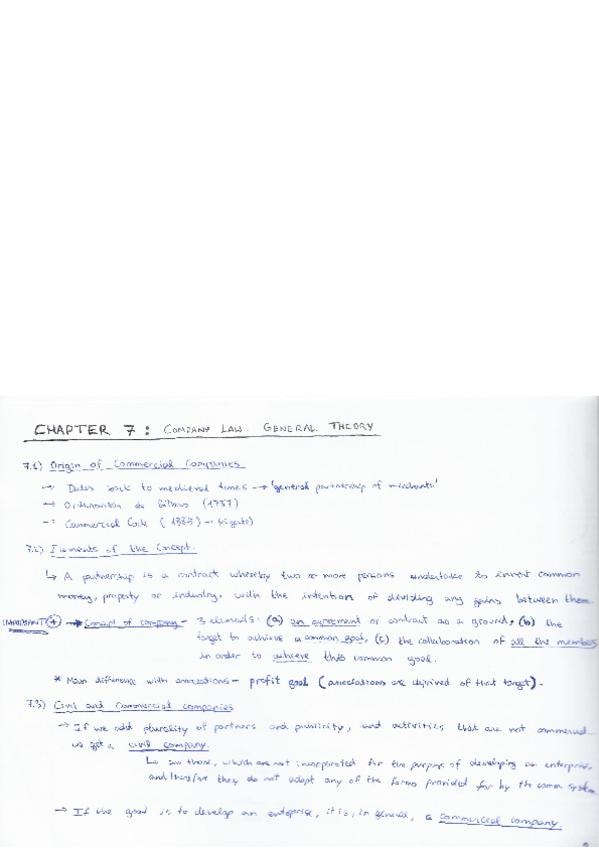 CHAPTER 7 : COMPANY LAW. GENERAL THEORY
7.1) Origin of Commercial Companies
→ Dates back to medieval times → 'general partnership of merchants'
→ Ordenanzas de Bilbao (1737)
→ Commercial Code (1885) →
7.2) Elements of the Concept.
↳ A partnership is a contract whereby two or more persons undertake to invest common
money, property or industry, with the intention of dividing any gains between them
IMPORTANT (+) → Concept of company - 3 elements: (a) an agreement or contract as a ground, (b) the
target to achieve a common goal, (c) the collaboration of all the members
in order to achieve this common goal.
* Main difference with associations - profit goal (associations are deprived of that target).
7.3) Civil and Commercial companies
→ If we add plurality of partners and publicity, and activities that are not commercial
we get a civil company.
↳ are those, which are not incorporated for the purpose of developing an enterprise,
and therefore they do not adopt any of the forms provided for by the comm. system
→ If the goal is to develop an enterprise, it is, in general, a commercial company.